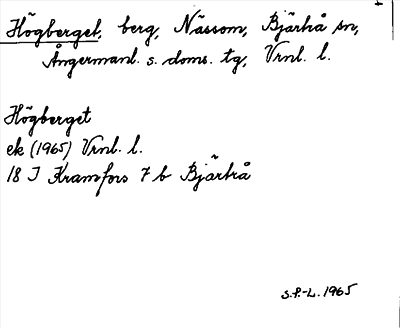 Högberget, berg, Nässom, Bjärtrå sn,
Ångermanl. s. doms. tg, Vrnl. l.
Högberget
ek (1965) Vrnl. l.
18 J Kramfors 7 b Bjärtrå
S.F.-L. 1965